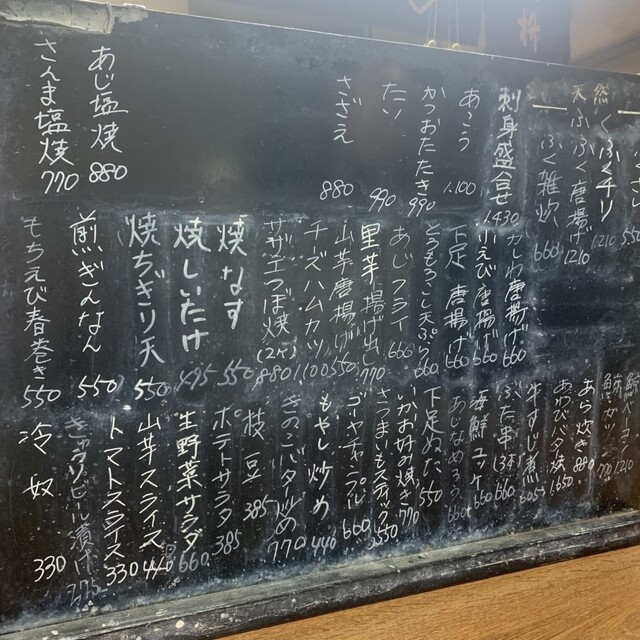 然 ふくチリ 1210
天ふ ふく唐揚げ 1210
ふく雑炊 660
刺身盛合せ 1430
あこう 1.100
かつおたたき 990
たい 990
さざえ 880
あじ塩焼 880
さんま塩焼 770
かしわ唐揚げ 660
小えび唐揚げ 660
下足 唐揚げ 660
とうもろこし天ぷら 660
あじフライ 660
里芋揚げ出し 770
山芋唐揚げ 550
チーズハムカツ 1100
サザエつぼ焼 (2ケ) 880
焼なす 550
焼しいたけ 495
焼ちぎり天 550
煎ぎんなん 550
もちえび春巻き 550
鯨ベーコン 1210
鯨カツ 770
あら炊き 880
あわびバター焼 1.650
牛すじ煮 605
ぶた串(3本) 660
海鮮ユッケ 660
あじなめろう 660
下足ぬた 550
いかお好み焼き 770
さつまいもスティック 550
ゴーヤチャンプル 660
もやし炒め 440
きのこバター炒め 770
枝豆 385
ポテトサラダ 385
生野菜サラダ 660
山芋スライス 440
トマトスライス 330
きゅうりビール漬け 275
冷奴 330